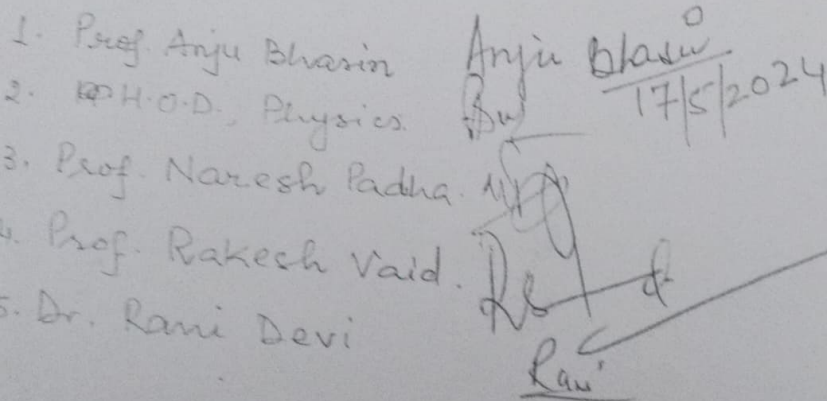 1. Prof. Anju Bhasin Anju Bhasin
17/5/2024
2. H.O.D., Physics.
3. Prof. Naresh Padha.
4. Prof. Rakesh Vaid.
5. Dr. Rani Devi
Rani